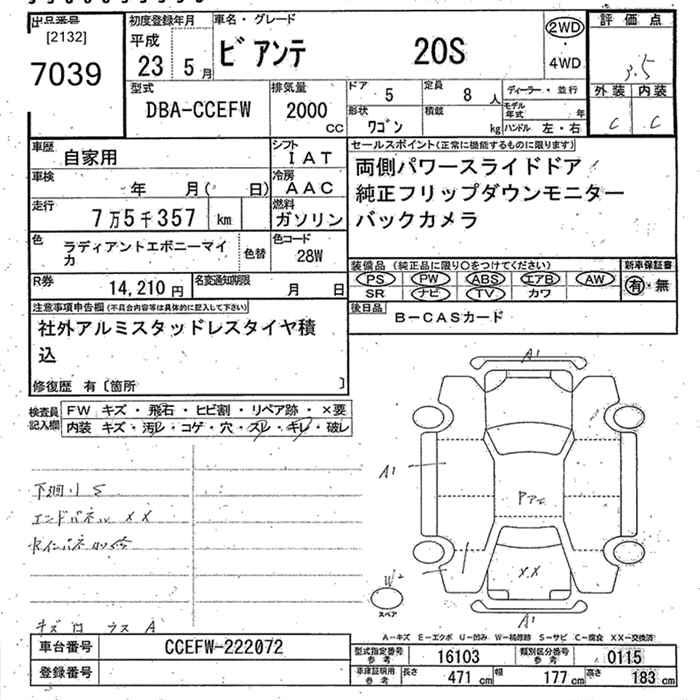 出品番号
[2132]
7039
初度登録年月
平成
23 5月
車名・グレード
ビアンテ 20S
2WD
4WD
評価点
3.5
外装 内装
C C
型式
DBA-CCEFW
排気量
2000
CC
ドア 5
定員 8人
形状 ワゴン
積載 kg
ディーラー・並行
モデル年式 年
ハンドル 左・右
車歴 自家用
シフト
IAT
車検 年 月( 日)
冷房
AAC
走行 7万5千357 km
燃料
ガソリン
色 ラディアントエボニーマイカ
色替
色コード
28W
R券 14,210円
名変通知期限 月 日
セールスポイント(正常に機能するものに限ります)
両側パワースライドドア
純正フリップダウンモニター
バックカメラ
装備品 (純正品に限り○をつけてください)
PS PW ABS エアB AW
SR ナビ TV カワ
新車保証書
有・無
後日品 B-CASカード
注意事項申告欄(不具合内容等は具体的に記入して下さい)
社外アルミスタッドレスタイヤ積
込
修復歴 有〔箇所 〕
検査員
記入欄
FW キズ・飛石・ヒビ割・リペア跡・×要
内装 キズ・汚レ・コゲ・穴・スレ・キレ・破レ
下廻り S
エンドパネル XX
A1
A1
A1
XX
W2
スペア
A-キズ E-エクボ U-凹み W-補修跡 S-サビ C-腐食 XX-交換済
車台番号 CCEFW-222072
登録番号
型式指定番号
参考
16103
類別区分番号
参考
0115
車庫証明用
参考
長さ 471cm 幅 177cm 高さ 183cm